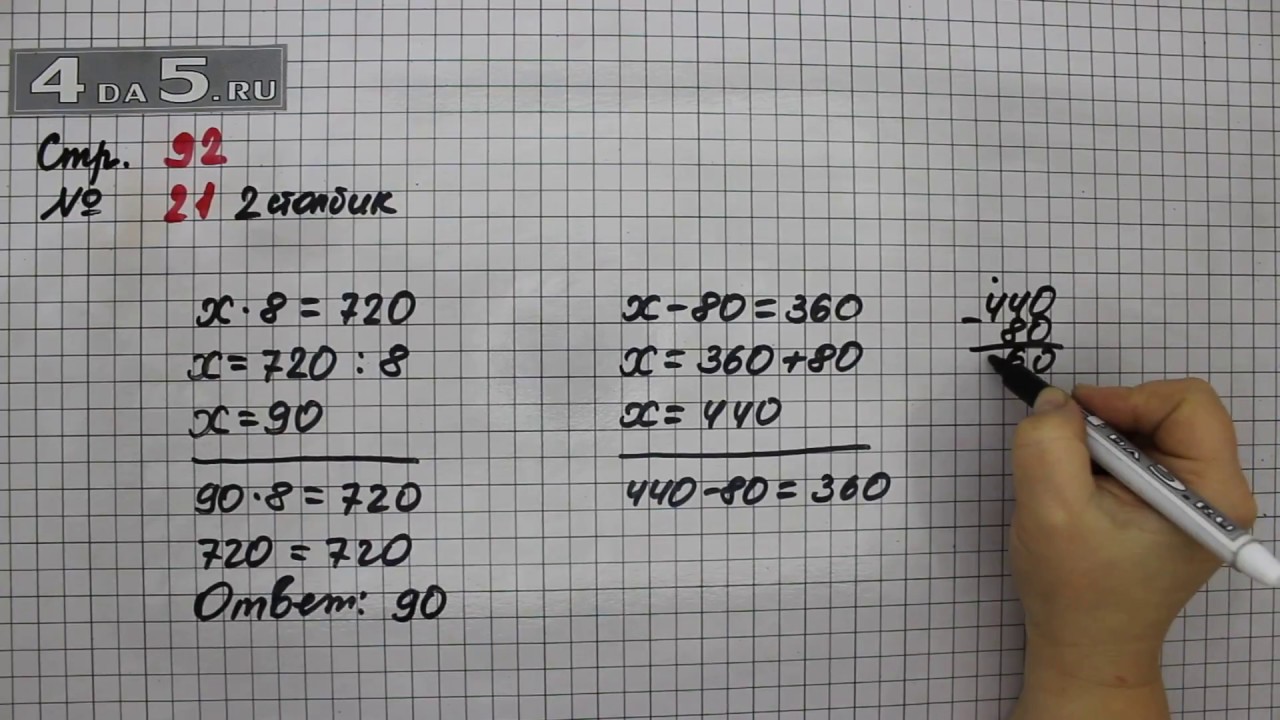 4DA5.RU
Стр. 92
№ 21 2 столбик
x · 8 = 720
x = 720 : 8
x = 90
90 · 8 = 720
720 = 720
Ответ: 90
x - 80 = 360
x = 360 + 80
x = 440
440 - 80 = 360
440
- 80
60
DA 5.RU